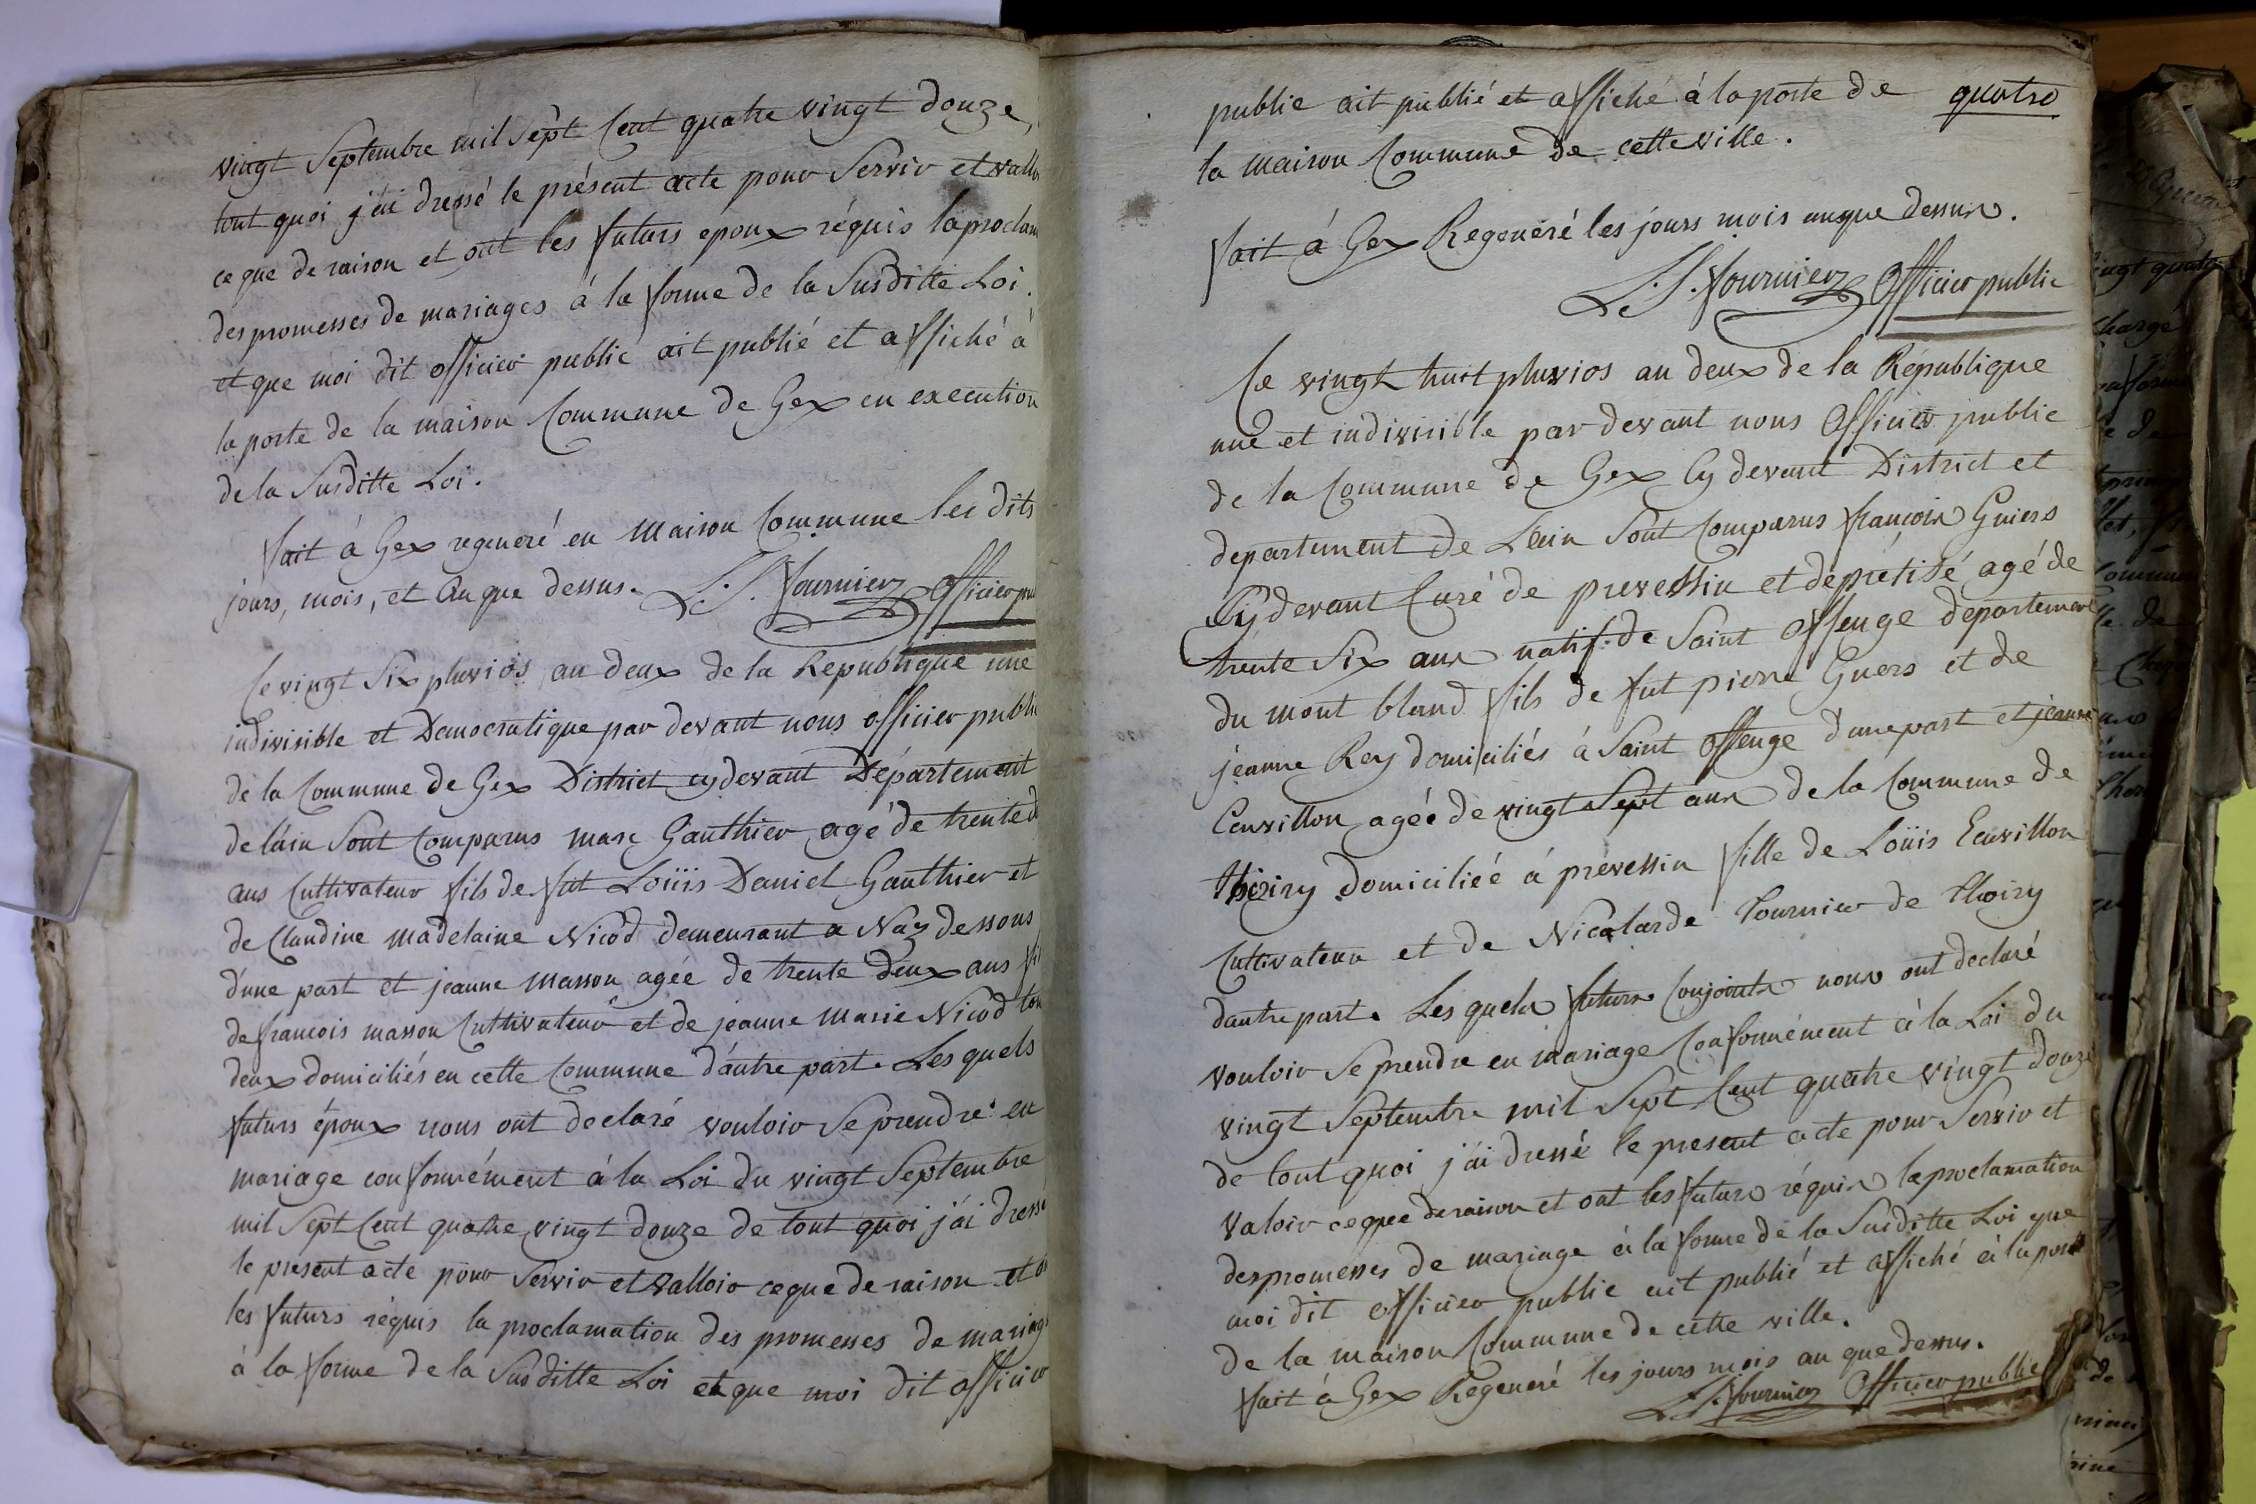 vingt Septembre mil Sept Cent quatre vingt douze,
tout quoi j'ai dressé le présent acte pour Servir et vall
ce que de raison et ont les futurs epoux réquis la proclam
des promesses de mariages á la forme de la Susditte Loi.
et que moi dit officier public ait publié et affiché á
la porte de la maison Commune de Gex en execution
de la Susditte Loi.
fait á Gex regeneré en Maison Commune les dits
jours, mois, et an que dessus. L. J. fournier officier pu
Ce vingt Six pluviôs an deux de la Republique une
indivisible et Democratique par devant nous officier publi
de la Commune de Gex District cy devant Département
de l'ain Sont Comparus marc Gauthier agé de trente d
ans Cultivateur fils de fut Loüis Daniel Gauthier et
de Claudine Madelaine Nicod demeurant a Naz dessous
d'une part et jeanne Masson agée de trente deux ans fil
de francois masson Cultivateur et de jeanne Marie Nicod tou
deux domiciliés en cette Commune d'autre part. Les quels
futurs époux nous ont declaré vouloir Se prendre en
mariage conformément á la Loi du vingt Septembre
mil Sept Cent quatre vingt douze de tout quoi j'ai dressé
le present acte pour Servir et valloir ce que de raison et o
les futurs réquis la proclamation des promesses de mariage
á la forme de la Susditte Loi et que moi dit officier
public ait publié et affiché á la porte de quatre
la Maison Commune de cette ville.
fait á Gex Regeneré les jours mois an que dessus.
L. J. fournier Officier public
Ce vingt huit pluvios an deux de la République
une et indivisible par devant nous Officier public
de la Commune de Gex Cy devant District et
departement de Lain Sont Comparus françois Guers
Cy devant Curé de prevessin et déprétisé agé de
trente Six ans natif de Saint offenge departement
du mont bland fils de fut pierre Guers et de
jeanne Rey domiciliés á Saint offenge d'une part et jeanne
Ecuvillon agée de vingt Sept ans de la Commune de
thoiry domiciliée á prévessin fille de Loüis Ecuvillon
Cultivateur et de Nicolarde Tournier de thoiry
dautre part. Les quels futurs Conjoints nous ont declaré
vouloir Se prendre en mariage Conformément á la Loi du
vingt Septembre mil Sept Cent quatre vingt douze
de tout quoi j'ai dressé le present acte pour Servir et
valoir ce que de raison et ont les futurs réquis la proclamation
des promesses de mariage á la forme de la Susditte Loi que
moi dit officier public ait publié et affiché á la porte
de la maison Commune de cette ville.
fait á Gex Regeneré les jours mois an que dessus.
L. J. fournier Officier public